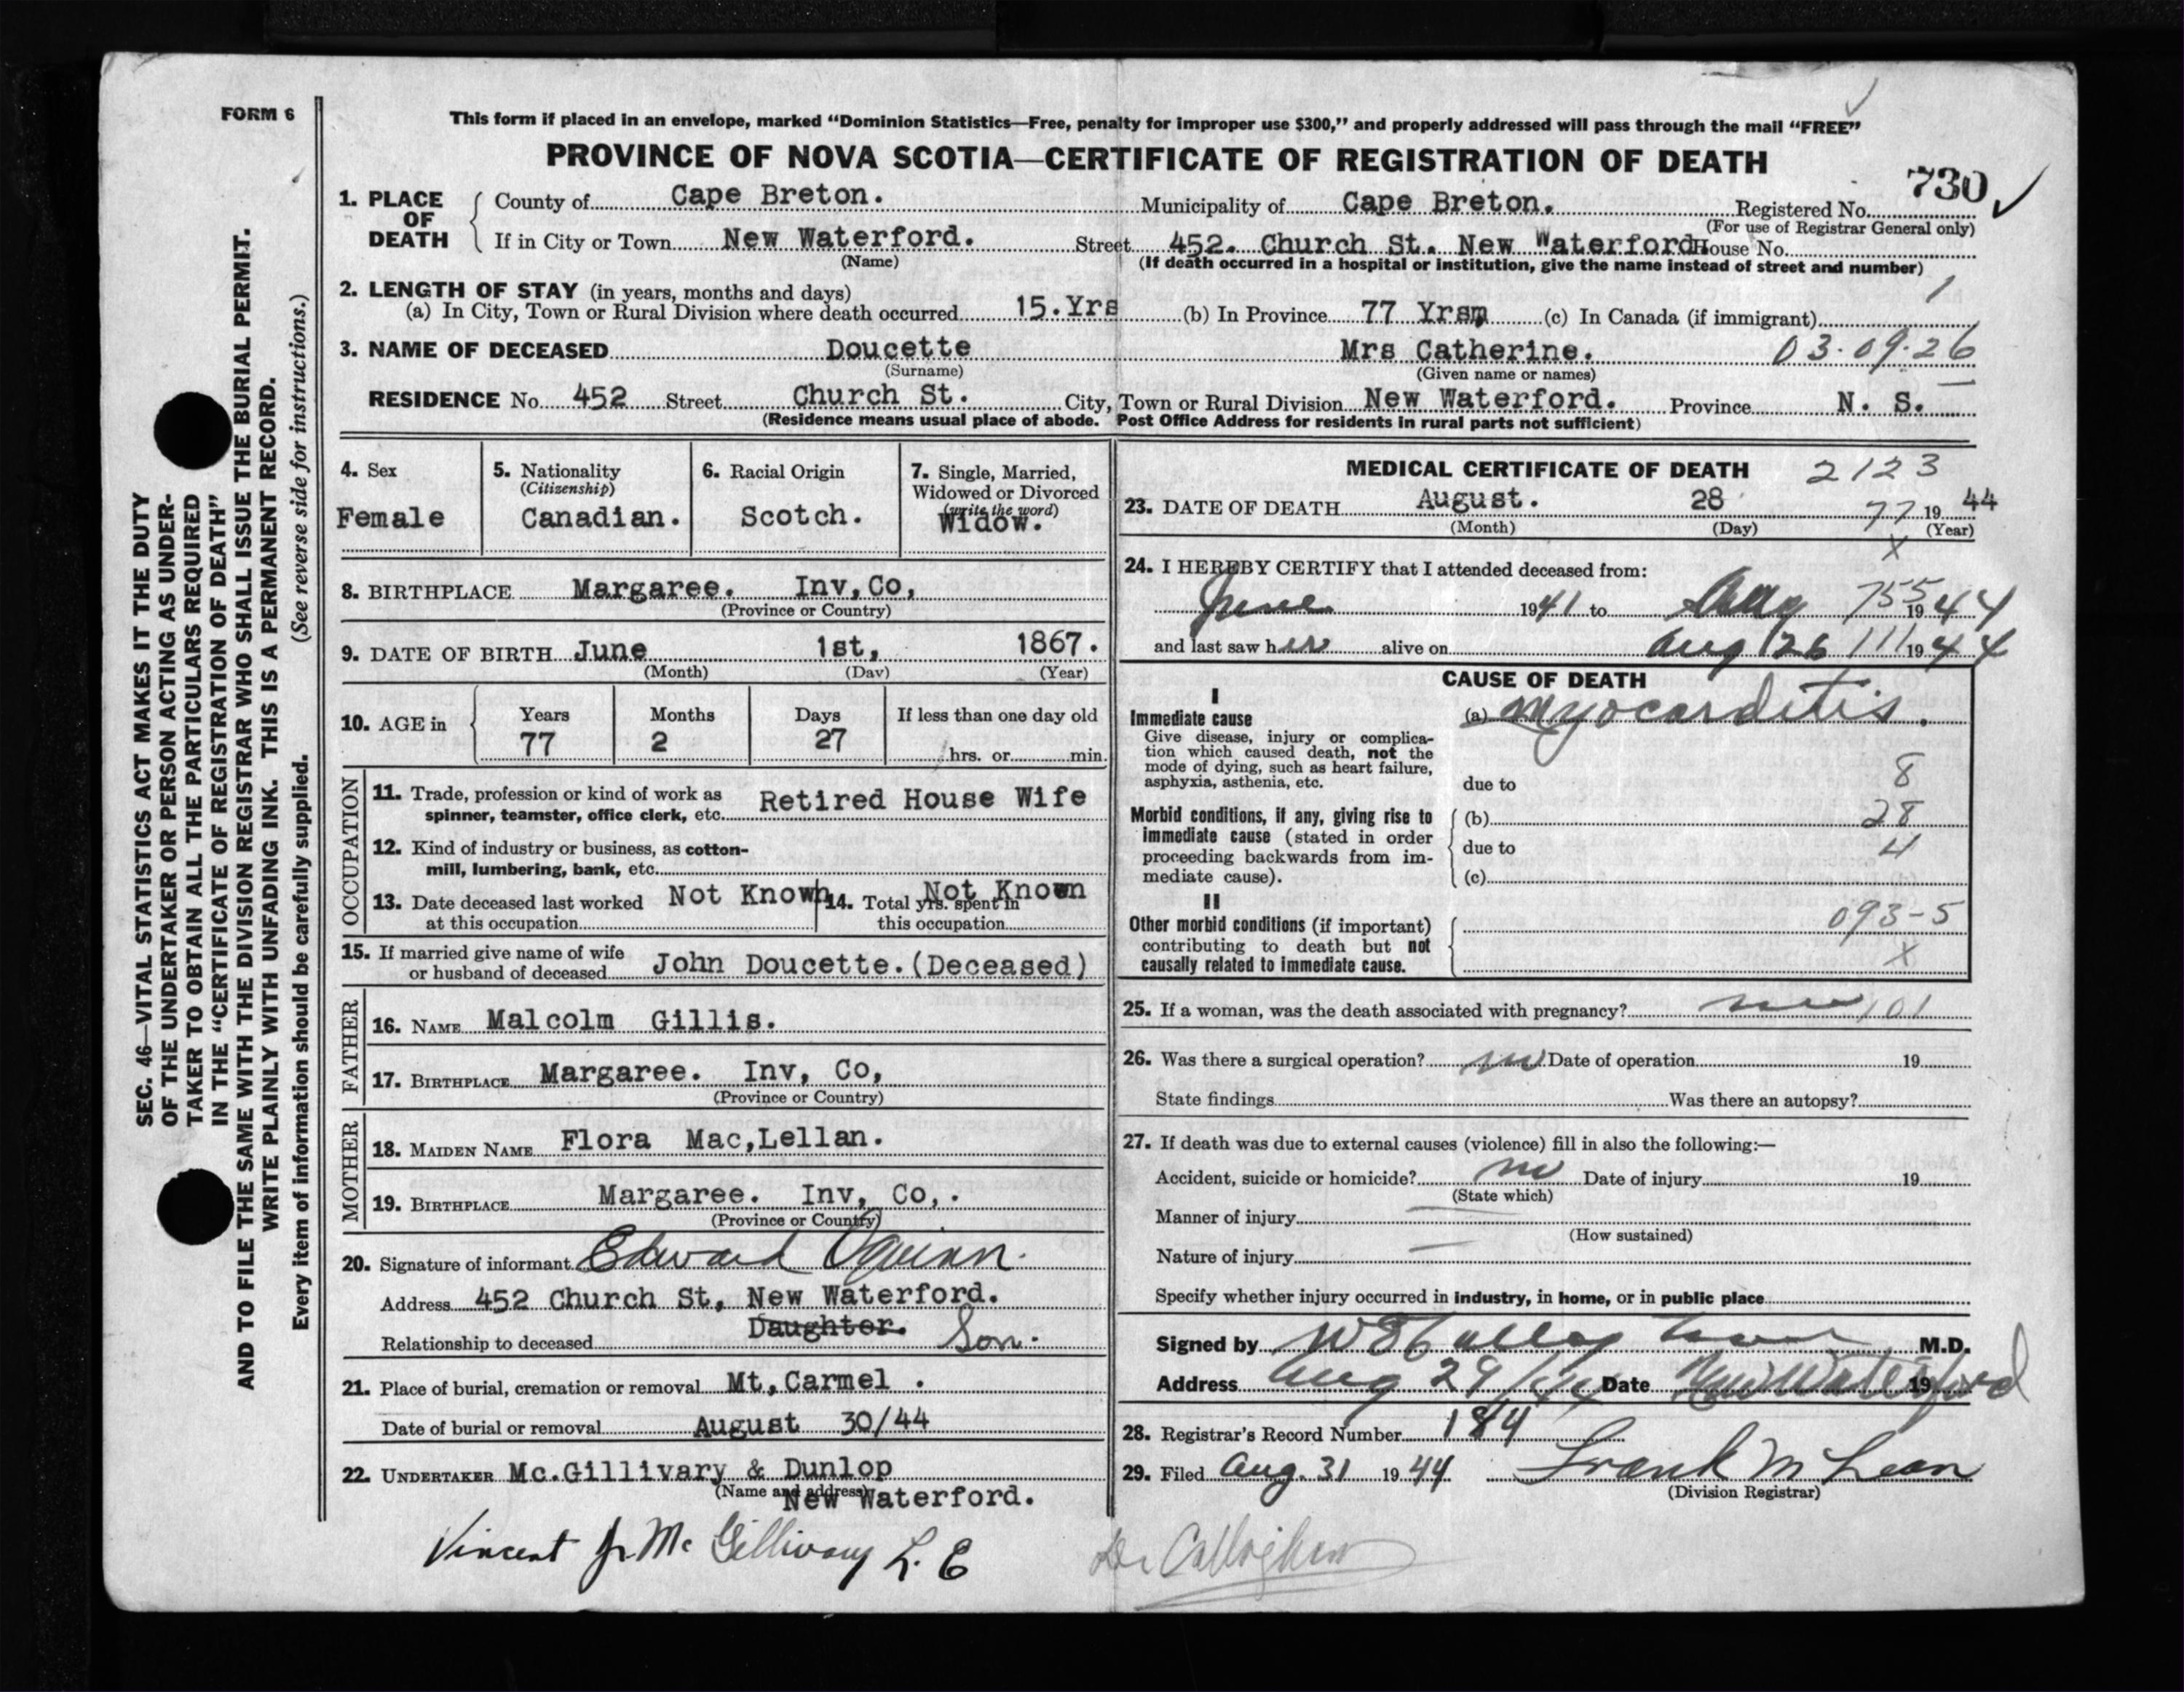 FORM 6
This form if placed in an envelope, marked “Dominion Statistics—Free, penalty for improper use $300,” and properly addressed will pass through the mail “FREE”
PROVINCE OF NOVA SCOTIA—CERTIFICATE OF REGISTRATION OF DEATH
730 ✓
1. PLACE OF DEATH { County of Cape Breton. Municipality of Cape Breton. Registered No.
(For use of Registrar General only)
If in City or Town New Waterford. Street 452. Church St. New Waterford House No.
(Name) (If death occurred in a hospital or institution, give the name instead of street and number)
2. LENGTH OF STAY (in years, months and days) 1
(a) In City, Town or Rural Division where death occurred 15.Yrs (b) In Province 77 Yrsm (c) In Canada (if immigrant)
3. NAME OF DECEASED Doucette Mrs Catherine. 03·09·26
(Surname) (Given name or names)
RESIDENCE No. 452 Street Church St. City, Town or Rural Division New Waterford. Province N. S.
(Residence means usual place of abode. Post Office Address for residents in rural parts not sufficient)
4. Sex
Female
5. Nationality
(Citizenship)
Canadian.
6. Racial Origin
Scotch.
7. Single, Married,
Widowed or Divorced
(write the word)
Widow.
8. BIRTHPLACE Margaree. Inv,Co,
(Province or Country)
9. DATE OF BIRTH June 1st, 1867.
(Month) (Day) (Year)
10. AGE in { Years Months Days If less than one day old
77 2 27 hrs. or min.
OCCUPATION
11. Trade, profession or kind of work as
spinner, teamster, office clerk, etc. Retired House Wife
12. Kind of industry or business, as cotton-
mill, lumbering, bank, etc.
13. Date deceased last worked Not Known
at this occupation
14. Total yrs. spent in Not Known
this occupation
15. If married give name of wife
or husband of deceased John Doucette.(Deceased)
FATHER
16. NAME Malcolm Gillis.
17. BIRTHPLACE Margaree. Inv, Co,
(Province or Country)
MOTHER
18. MAIDEN NAME Flora Mac,Lellan.
19. BIRTHPLACE Margaree. Inv, Co,.
(Province or Country)
20. Signature of informant Edward Oquinn.
Address 452 Church St, New Waterford.
Relationship to deceased Daughter. Son.
21. Place of burial, cremation or removal Mt,Carmel .
Date of burial or removal August 30/44
22. UNDERTAKER Mc.Gillivary & Dunlop
(Name and address)
New Waterford.
Vincent J. McGillivary L. E
MEDICAL CERTIFICATE OF DEATH 2123
23. DATE OF DEATH August. 28 77 19 44
(Month) (Day) (Year)
X
24. I HEREBY CERTIFY that I attended deceased from:
June 1941 to Aug 755 1944
and last saw her alive on Aug 26 111 1944
CAUSE OF DEATH
I
Immediate cause (a) Myocarditis.
Give disease, injury or complica-
tion which caused death, not the
mode of dying, such as heart failure,
asphyxia, asthenia, etc. due to 8
Morbid conditions, if any, giving rise to
immediate cause (stated in order
proceeding backwards from im-
mediate cause).
(b) 28
due to 4
(c)
II
Other morbid conditions (if important)
contributing to death but not
causally related to immediate cause.
093-5
X
25. If a woman, was the death associated with pregnancy? no 101
26. Was there a surgical operation? no Date of operation 19
State findings Was there an autopsy?
27. If death was due to external causes (violence) fill in also the following:—
Accident, suicide or homicide? no Date of injury 19
(State which)
Manner of injury
(How sustained)
Nature of injury
Specify whether injury occurred in industry, in home, or in public place
Signed by M.D.
Address Aug 29/44 Date New Waterford 19
28. Registrar's Record Number 184
29. Filed Aug. 31 1944 Frank McLean
(Division Registrar)
Dr Callaghan
SEC. 46—VITAL STATISTICS ACT MAKES IT THE DUTY
OF THE UNDERTAKER OR PERSON ACTING AS UNDER-
TAKER TO OBTAIN ALL THE PARTICULARS REQUIRED
IN THE “CERTIFICATE OF REGISTRATION OF DEATH”
AND TO FILE THE SAME WITH THE DIVISION REGISTRAR WHO SHALL ISSUE THE BURIAL PERMIT.
WRITE PLAINLY WITH UNFADING INK. THIS IS A PERMANENT RECORD.
Every item of information should be carefully supplied. (See reverse side for instructions.)